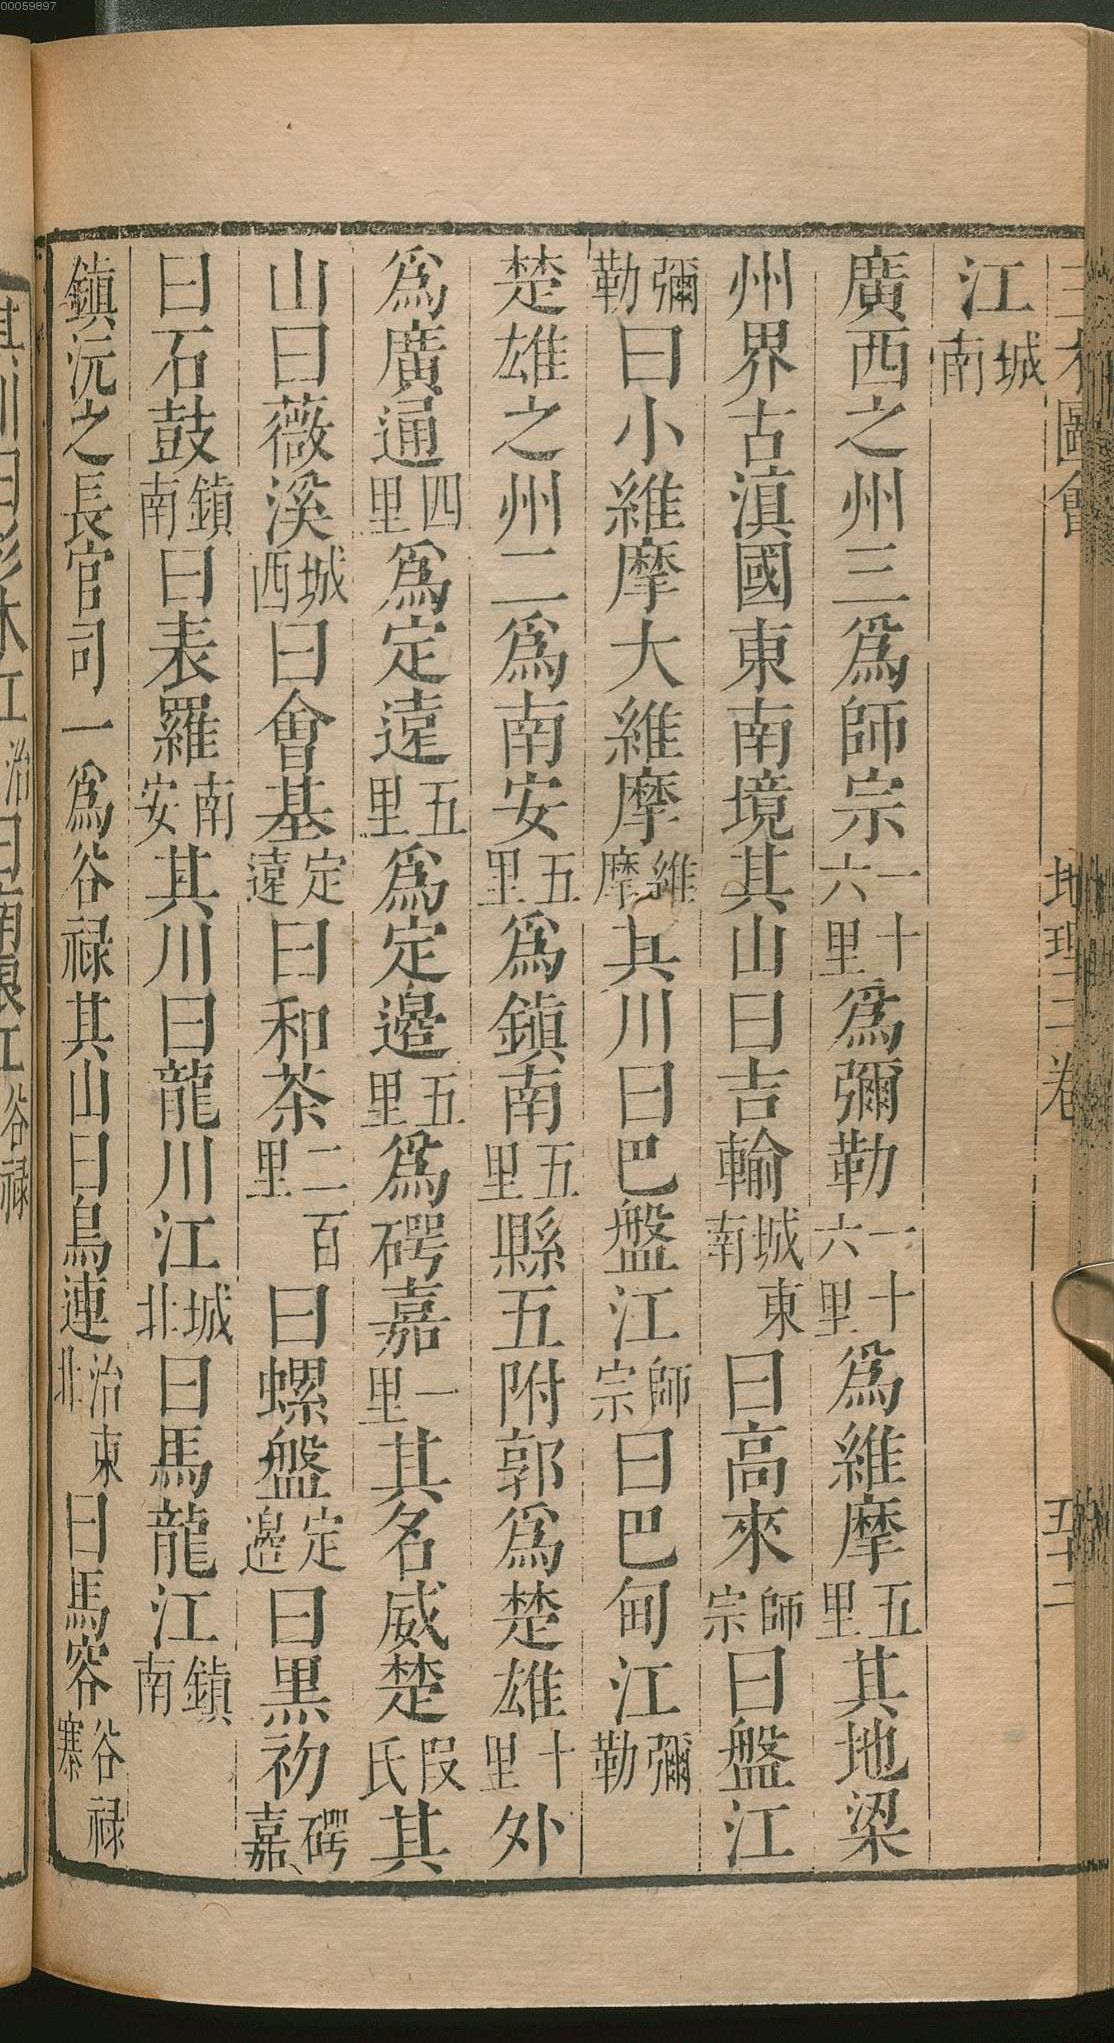 三才圖會 地理二卷 五十二
江城南
廣西之州三爲師宗一十六里爲彌勒一十六里爲維摩五里其地梁
州界古滇國東南境其山曰吉輸城東南曰高來師宗曰盤江
彌勒曰小維摩大維摩維摩其川曰巴盤江師宗曰巴甸江彌勒
楚雄之州二爲南安五里爲鎮南五里縣五附郭爲楚雄十里外
爲廣通四里爲定遠五里爲定邊五里爲𥔲嘉一里其名威楚叚氏其
山曰薇溪城西曰會基定遠曰和茶二百里曰螺盤定邊曰黑初𥔲嘉
曰石鼓鎮南曰表羅南安其川曰龍川江城北曰馬龍江鎮南
鎮沅之長官司一爲谷祿其山曰烏連治東北曰馬容谷祿寨
其川曰杉木江治曰南浪江谷祿